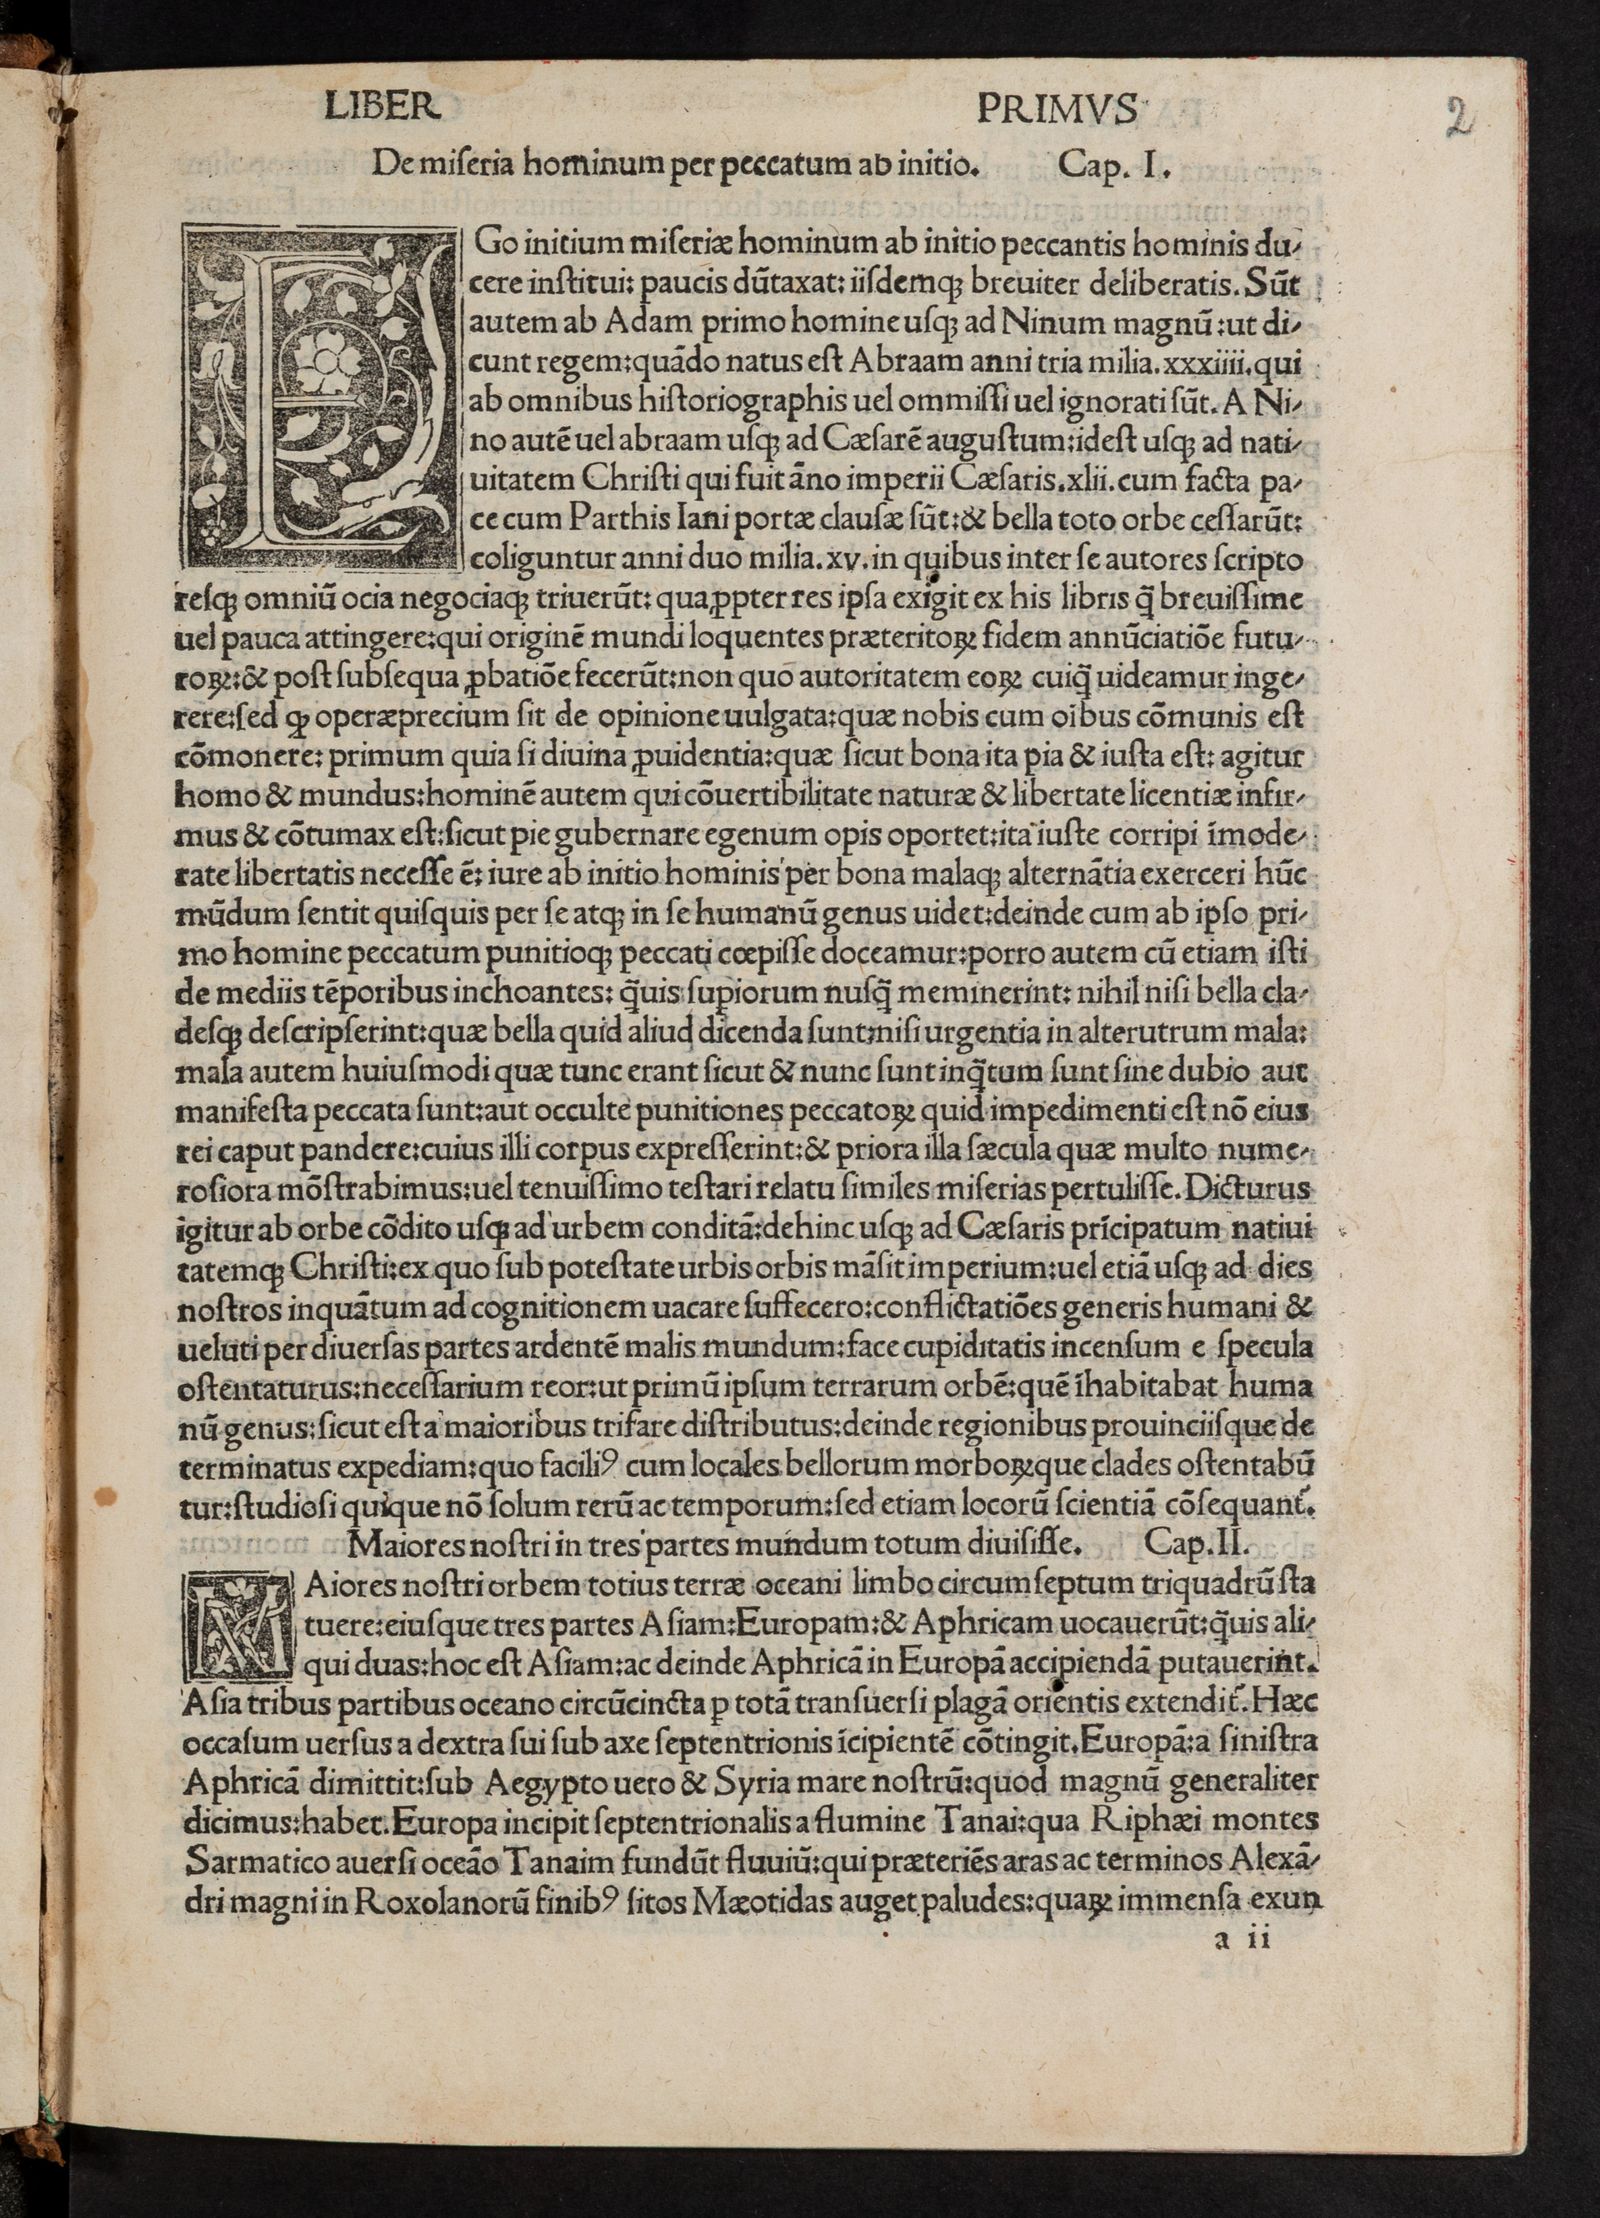 LIBER PRIMVS 2
De miſeria hominum per peccatum ab initio. Cap. I.
EGo initium miſeriæ hominum ab initio peccantis hominis du⸗
cere inſtitui: paucis dũtaxat: iiſdemqꝫ breuiter deliberatis. Sũt
autem ab Adam primo homine uſqꝫ ad Ninum magnũ: ut di⸗
cunt regem: quãdo natus eſt Abraam anni tria milia. xxxiiii. qui
ab omnibus hiſtoriographis uel ommiſſi uel ignorati ſũt. A Ni⸗
no autẽ uel abraam uſqꝫ ad Cæſarẽ auguſtum: ideſt uſqꝫ ad nati⸗
uitatem Chriſti qui fuit ãno imperii Cæſaris. xlii. cum facta pa⸗
ce cum Parthis Iani portæ clauſæ ſũt: & bella toto orbe ceſſarũt:
coliguntur anni duo milia. xv. in quibus inter ſe autores ſcripto
reſqꝫ omniũ ocia negociaqꝫ triuerũt: quaꝓpter res ipſa exigit ex his libris q̃ breuiſſime
uel pauca attingere: qui originẽ mundi loquentes præteritoꝝ fidem annũciatiõe futu⸗
roꝝ: & poſt ſubſequa ꝓbatiõe fecerũt: non quo autoritatem eoꝝ cuiq̃ uideamur inge⸗
rere: ſed qꝫ operæprecium ſit de opinione uulgata: quæ nobis cum oĩbus cõmunis eſt
cõmonere: primum quia ſi diuina ꝓuidentia: quæ ſicut bona ita pia & iuſta eſt: agitur
homo & mundus: hominẽ autem qui cõuertibilitate naturæ & libertate licentiæ infir⸗
mus & cõtumax eſt: ſicut pie gubernare egenum opis oportet: ita iuſte corripi ĩmode⸗
rate libertatis neceſſe ẽ: iure ab initio hominis per bona malaqꝫ alternãtia exerceri hũc
mũdum ſentit quiſquis per ſe atqꝫ in ſe humanũ genus uidet: deinde cum ab ipſo pri⸗
mo homine peccatum punitioqꝫ peccati cœpiſſe doceamur: porro autem cũ etiam iſti
de mediis tẽporibus inchoantes: q̃uis ſupiorum nuſq̃ meminerint: nihil niſi bella cla⸗
deſqꝫ deſcripſerint: quæ bella quid aliud dicenda ſunt: niſi urgentia in alterutrum mala:
mala autem huiuſmodi quæ tunc erant ſicut & nunc ſunt inq̃tum ſunt ſine dubio aut
manifeſta peccata ſunt: aut occulte punitiones peccatoꝝ quid impedimenti eſt nõ eius
rei caput pandere: cuius illi corpus expreſſerint: & priora illa ſæcula quæ multo nume⸗
roſiora mõſtrabimus: uel tenuiſſimo teſtari relatu ſimiles miſerias pertuliſſe. Dicturus
igitur ab orbe cõdito uſqꝫ ad urbem conditã: dehinc uſqꝫ ad Cæſaris prĩcipatum natiui
tatemqꝫ Chriſti: ex quo ſub poteſtate urbis orbis mãſit imperium: uel etiã uſqꝫ ad dies
noſtros inquãtum ad cognitionem uacare ſuffecero: conflictatiões generis humani &
ueluti per diuerſas partes ardentẽ malis mundum: face cupiditatis incenſum e ſpecula
oſtentaturus: neceſſarium reor: ut primũ ipſum terrarum orbẽ: quẽ ĩhabitabat huma
nũ genus: ſicut eſt a maioribus trifare diſtributus: deinde regionibus prouinciiſque de
terminatus expediam: quo faciliꝰ cum locales bellorum morboꝝque clades oſtentabũ
tur: ſtudioſi quique nõ ſolum rerũ ac temporum: ſed etiam locorũ ſcientiã cõſequant̃.
Maiores noſtri in tres partes mundum totum diuiſiſſe. Cap. II.
MAiores noſtri orbem totius terræ oceani limbo circumſeptum triquadrũ ſta
tuere: eiuſque tres partes Aſiam: Europam: & Aphricam uocauerũt: q̃uis ali⸗
qui duas: hoc eſt Aſiam: ac deinde Aphricã in Europã accipiendã putauerint.
Aſia tribus partibus oceano circũcincta ꝑ totã tranſuerſi plagã orientis extendit̃. Hæc
occaſum uerſus a dextra ſui ſub axe ſeptentrionis ĩcipientẽ cõtingit. Europã: a ſiniſtra
Aphricã dimittit: ſub Aegypto uero & Syria mare noſtrũ: quod magnũ generaliter
dicimus: habet. Europa incipit ſeptentrionalis a flumine Tanai: qua Riphæi montes
Sarmatico auerſi oceão Tanaim fundũt fluuiũ: qui præteriẽs aras ac terminos Alexã⸗
dri magni in Roxolanorũ finibꝰ ſitos Mæotidas auget paludes: quaꝝ immenſa exun
a ii